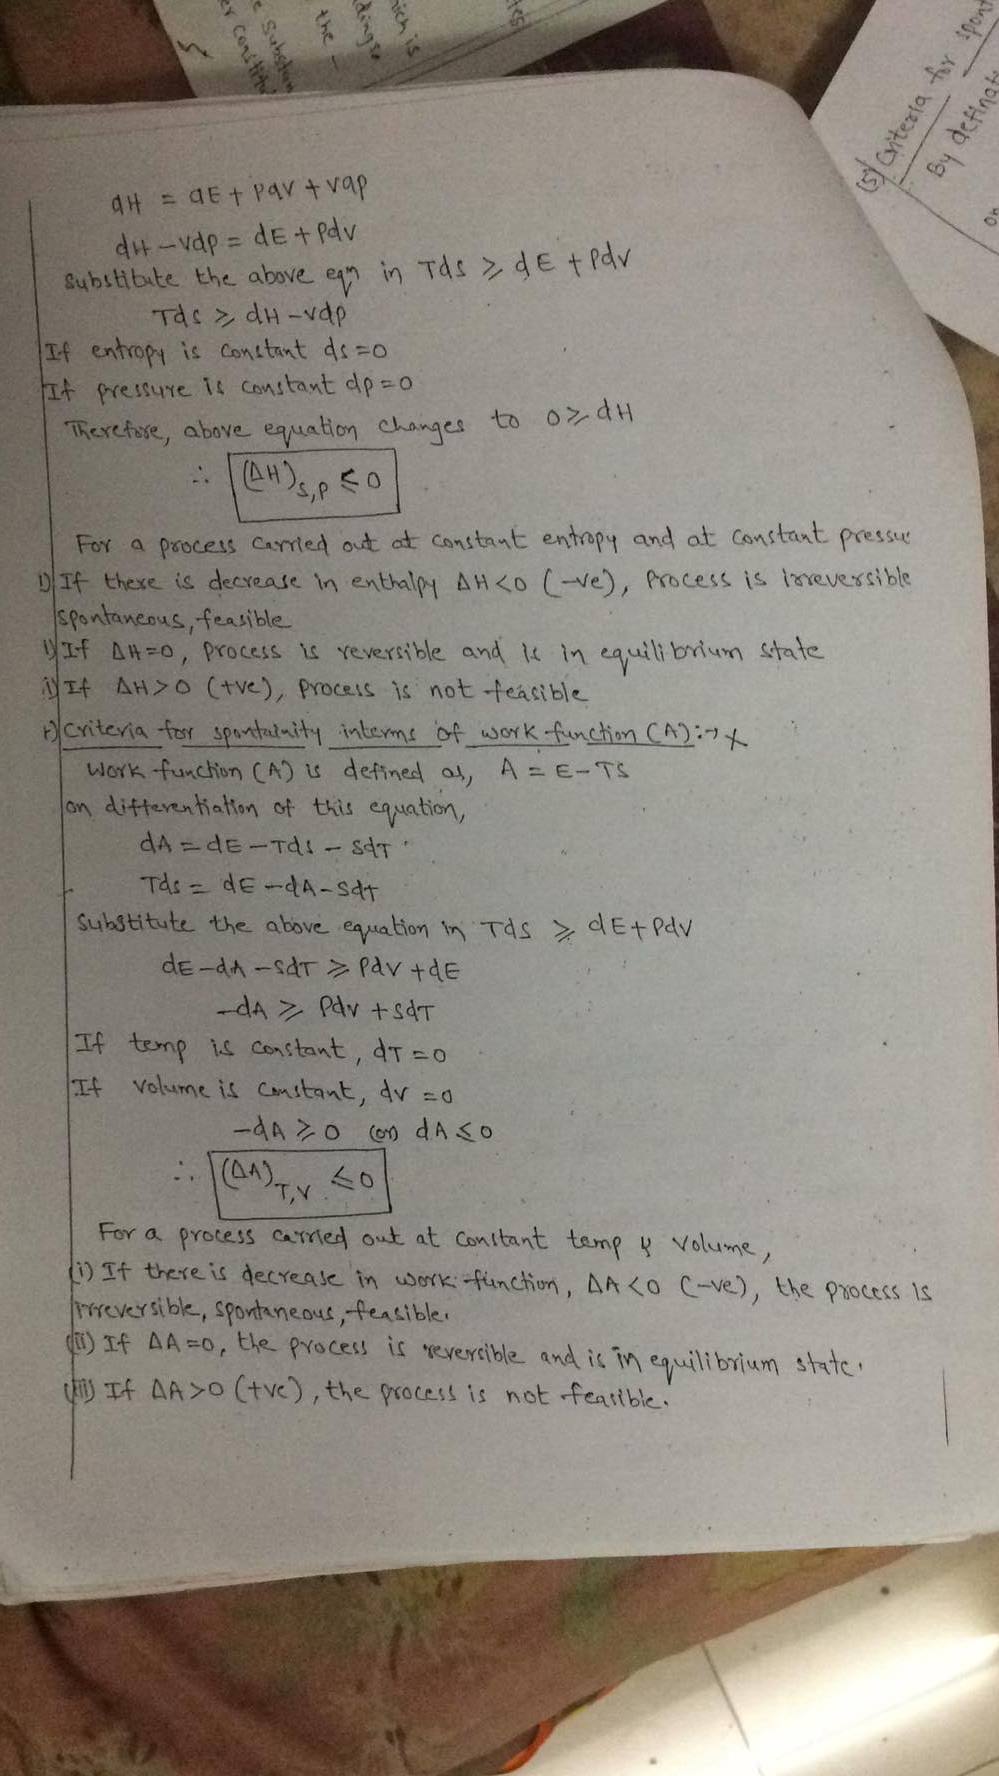 er constitu
e substan
the -
ding so
hich is
tes)
(5) Criteria for spont
By definat
on
dH = dE + Pdv + vdp
dH - vdp = dE + Pdv
Substitute the above eqn in Tds ⩾ dE + Pdv
Tds ⩾ dH - vdp
If entropy is constant ds = 0
If pressure is constant dp = 0
Therefore, above equation changes to 0 ⩾ dH
∴ (ΔH)s,p ⩽ 0
For a process carried out at constant entropy and at constant pressu
i) If there is decrease in enthalpy ΔH < 0 (-ve), Process is irreversible
spontaneous, feasible
i) If ΔH = 0, Process is reversible and is in equilibrium state
i) If ΔH > 0 (+ve), Process is not feasible
Criteria for spontainity interms of work function (A) :→ X
Work function (A) is defined as, A = E - TS
on differentiation of this equation,
dA = dE - Tds - SdT
Tds = dE - dA - SdT
Substitute the above equation in Tds ⩾ dE + Pdv
dE - dA - SdT ⩾ Pdv + dE
-dA ⩾ Pdv + SdT
If temp is constant, dT = 0
If volume is constant, dv = 0
-dA ⩾ 0 (or) dA ⩽ 0
∴ (ΔA)T,V ⩽ 0
For a process carried out at constant temp & volume,
(i) If there is decrease in work function, ΔA < 0 (-ve), the process is
irreversible, spontaneous, feasible.
(ii) If ΔA = 0, the process is reversible and is in equilibrium state.
(iii) If ΔA > 0 (+ve), the process is not feasible.